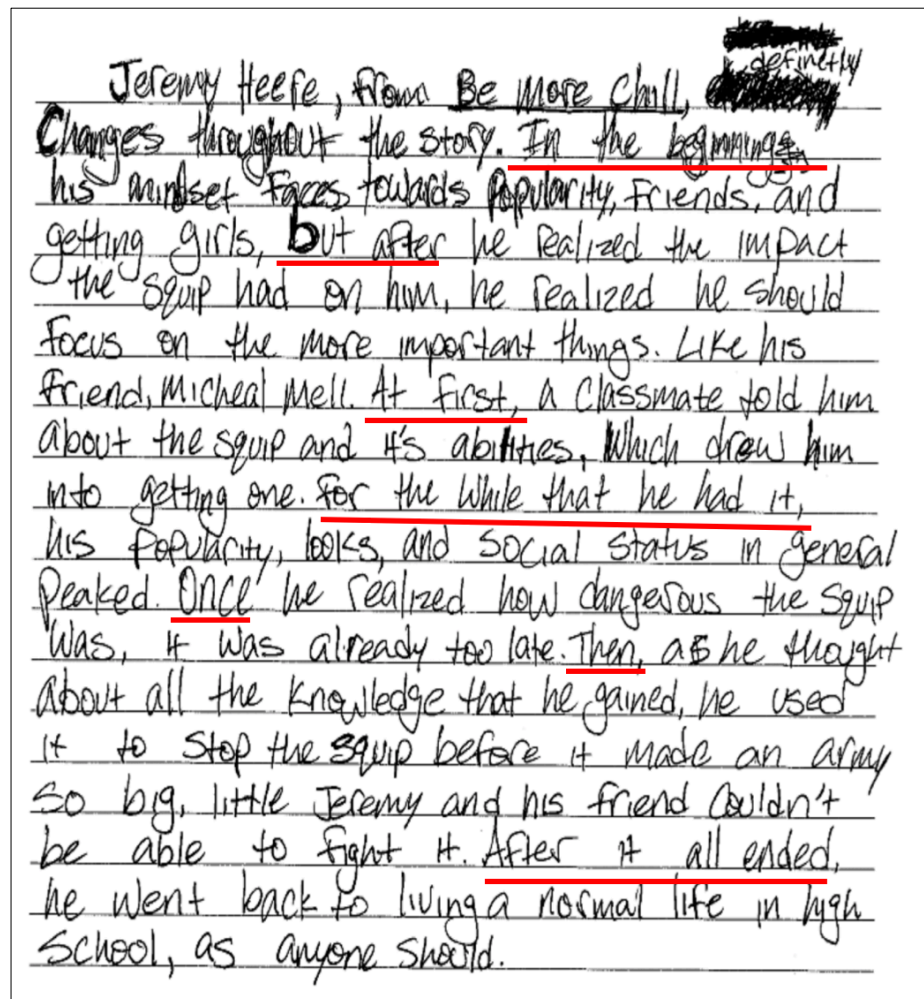 Jeremy Heere, from Be More Chill, definetly
Changes throughout the story. In the beginning,
his mindset faces towards Popularity, Friends, and
getting girls, but after he realized the impact
the squip had on him, he realized he should
focus on the more important things. Like his
friend, Micheal Mell. At first, a Classmate told him
about the squip and it's abilities, Which drew him
into getting one. For the while that he had it,
his Popularity, looks, and social status in general
Peaked. Once he realized how dangerous the squip
was, it was already too late. Then, as he thought
about all the knowledge that he gained, he used
it to stop the squip before it made an army
so big, little Jeremy and his friend Couldn't
be able to fight it. After it all ended,
he went back to living a normal life in high
School, as anyone should.